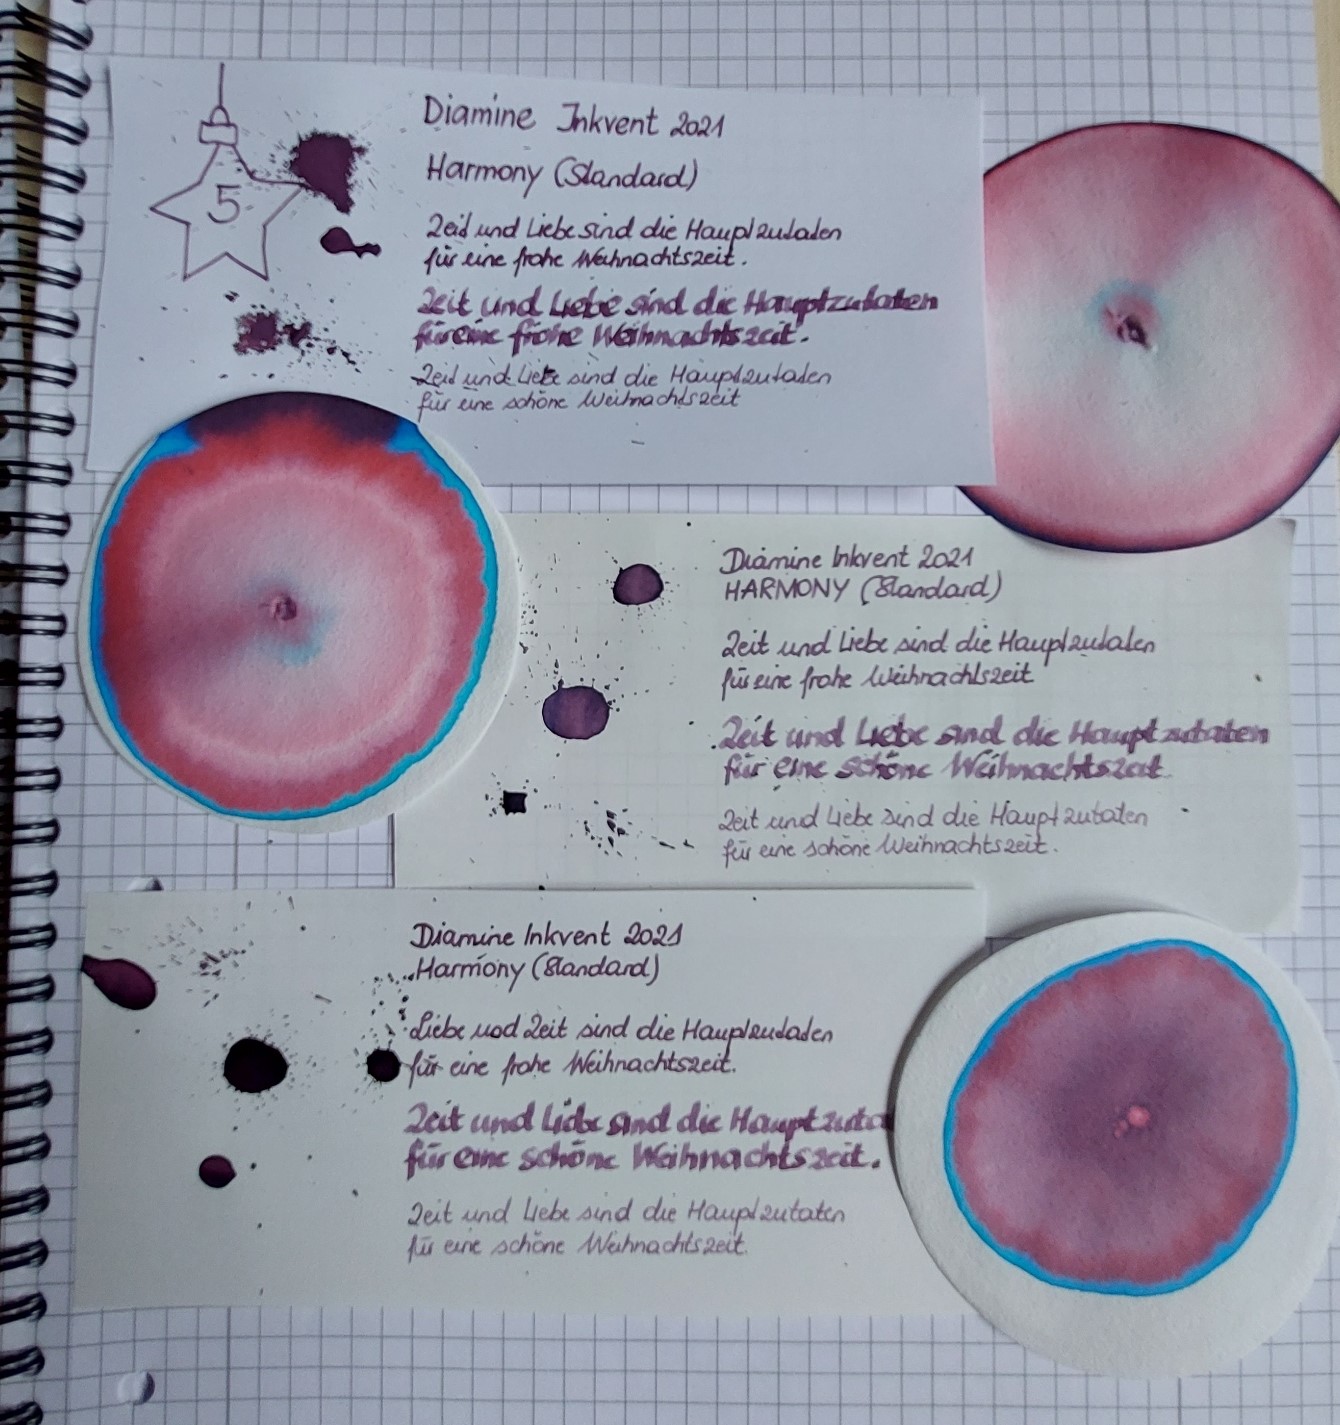 5
Diamine Inkvent 2021
Harmony (Standard)
Zeit und Liebe sind die Hauptzutaten
für eine frohe Weihnachtszeit.
Zeit und Liebe sind die Hauptzutaten
für eine frohe Weihnachtszeit.
Zeit und Liebe sind die Hauptzutaten
für eine schöne Weihnachtszeit
Diamine Inkvent 2021
HARMONY (Standard)
Zeit und Liebe sind die Hauptzutaten
für eine frohe Weihnachtszeit
Zeit und Liebe sind die Hauptzutaten
für eine schöne Weihnachtszeit
Zeit und Liebe sind die Hauptzutaten
für eine schöne Weihnachtszeit.
Diamine Inkvent 2021
Harmony (Standard)
Liebe und Zeit sind die Hauptzutaten
für eine frohe Weihnachtszeit.
Zeit und Liebe sind die Hauptzuta
für eine schöne Weihnachtszeit.
Zeit und Liebe sind die Hauptzutaten
für eine schöne Weihnachtszeit.